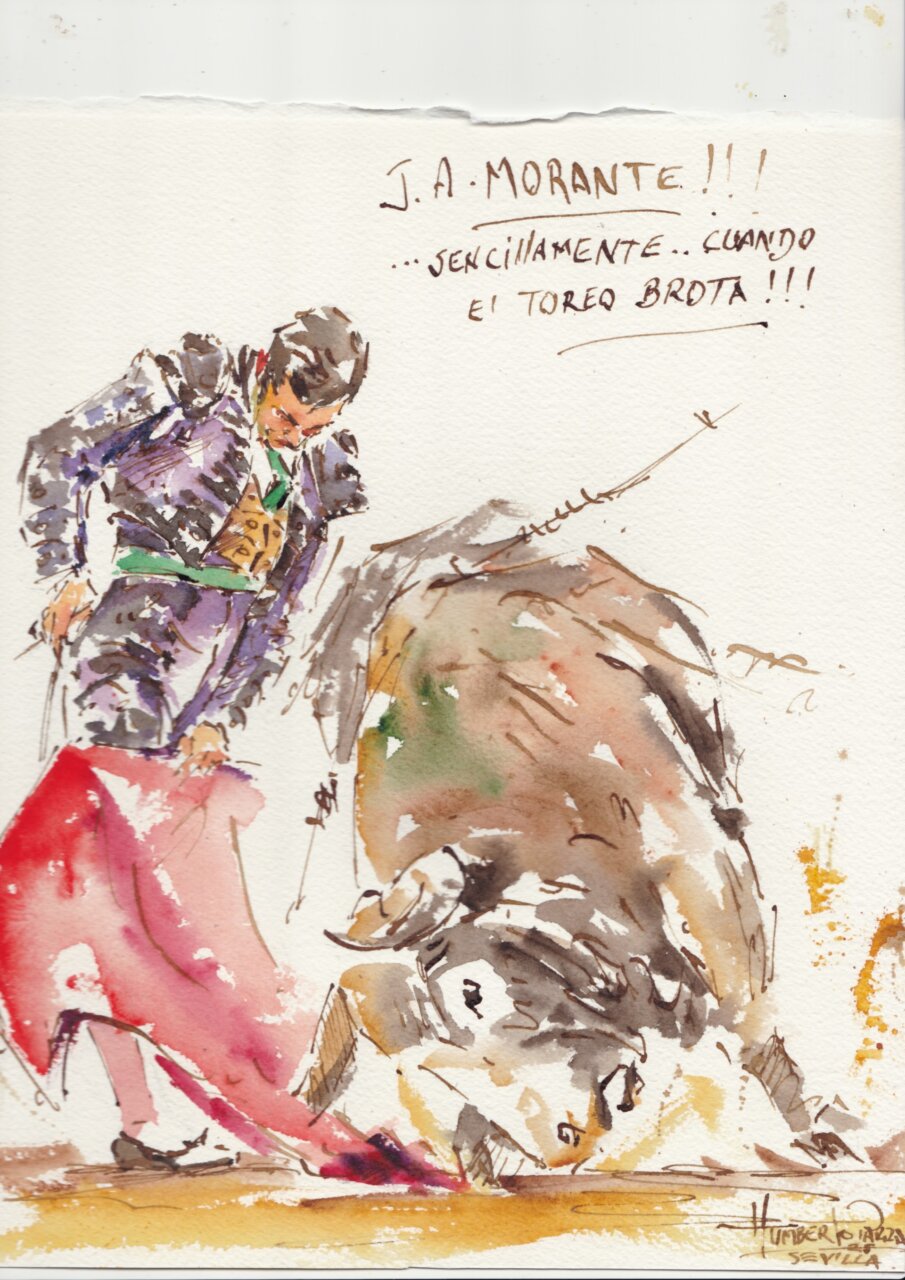 J.A. MORANTE!!!
...SENCIllAMENTE.. CUANDO
El TOREO BROTA!!!
HUMBERTO PARRA
SEVILLA